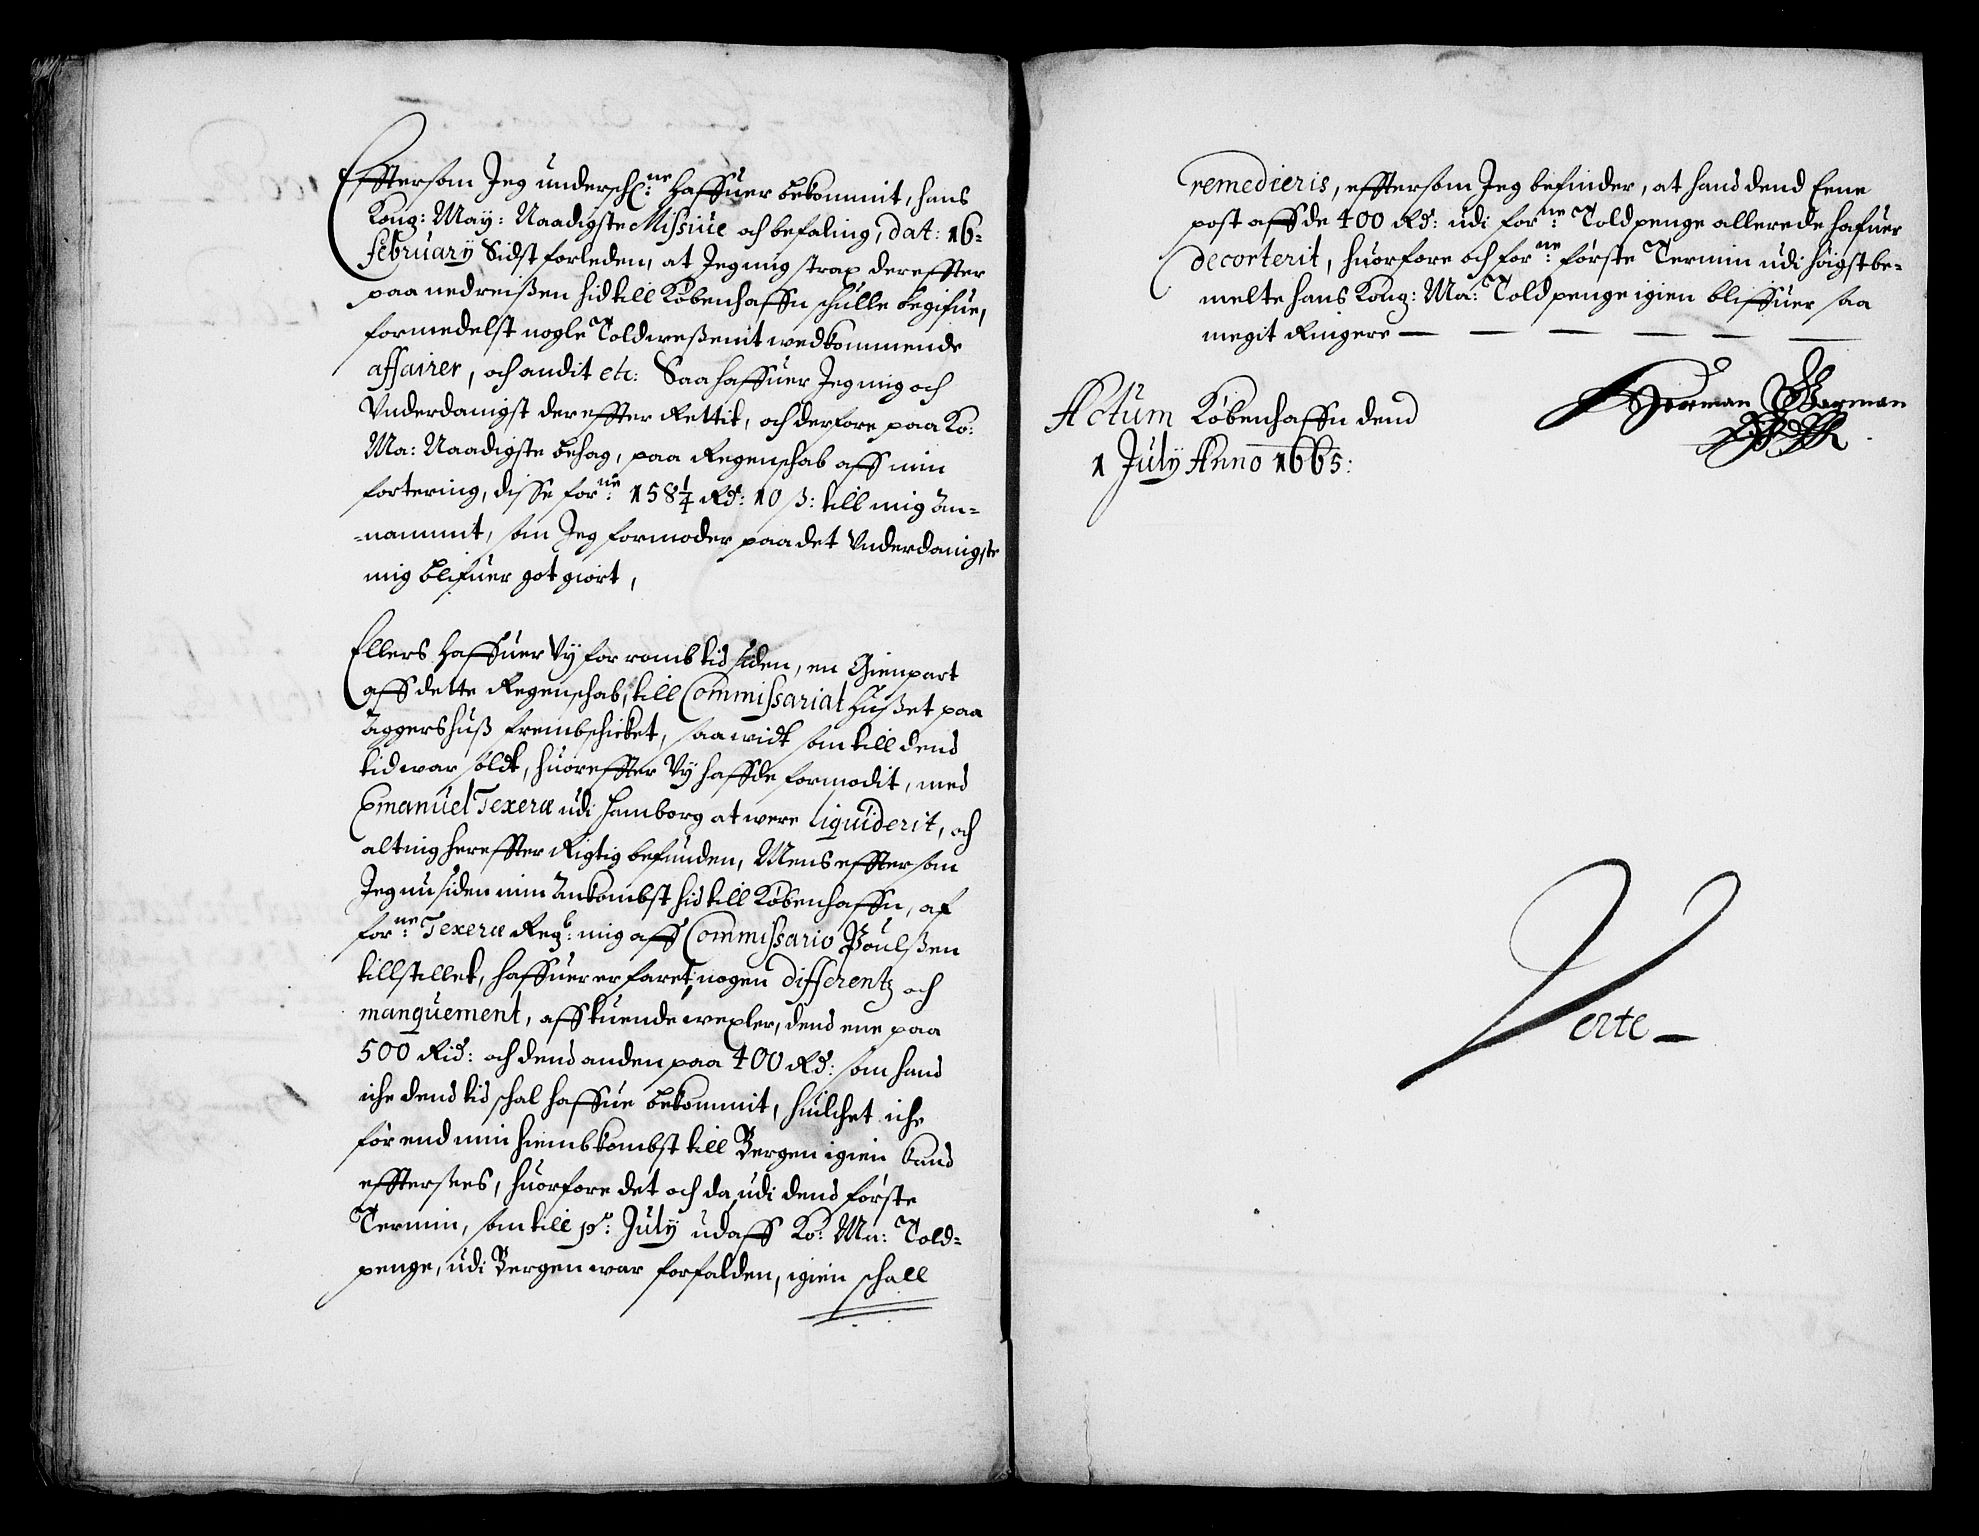 Efftersom Jeg underschne: Haffuer bekommit, hans
Kong: May: Naadigste Missive och befaling, dat: 16-
february Sidst forleden, at Jeg mig strax dereffter
paa nedreißen hid till Københaffn schulle begifue,
formedelst nogle Toldweßenit wedkommende
affairer, och andit etc: Saa haffuer Jeg mig och
Vnderdanigst dereffter Rettit, och derfore paa Ko:
Ma: Naadigste behag, paa Regenschab aff min
fortering, disse forne: 158¼ Rd: 10 ß: till mig an-
-nammit, som Jeg formoder paa det Vnderdanigste
mig blifuer got giort,
Ellers Haffuer Vÿ for romb tid siden, en Gienpart
aff dette Regenschab, till Commissariat Hußet paa
Aggershuß frembschicket, saa widt som till dend
tid war soldt, huoreffter Vÿ haffde formodit, med
Emanuel Texera udi Hamborg at were liquiderit, och
alting hereffter Rigtig befunden, Mens efftersom
Jeg nu siden min Ankombst hid till Københaffn, af
forne: Texera Regb: mig aff Commissario Poulßen
tillstillet, haffuer erfaret, nogen differentz och
manquement, aff tuende wexler, dend ene paa
500 Rid: och dend anden paa 400 Rd: som hand
iche dend tid schal haffue bekommit, huilchet iche
før end min hiembkombst till Bergen igien kand
efftersees, huorfore det och da, udi dend første
Termin, som till po: July udaff Ko: Ma: Told-
penge, udi Bergen war forfalden, igien schall
remedieris, efftersom Jeg befinder, at hand dend Eene
post aff de 400 Rd: udi forne: Toldpenge allerede hafuer
decorterit, huorfore och forne: første Termin udi høigstbe-
melte hans Kong: Ma: Toldpenge igien bliffuer saa
megit Ringere — — — — — —
Actum Københaffn dend
1 July Anno 1665:
Herman Garman
Verte —